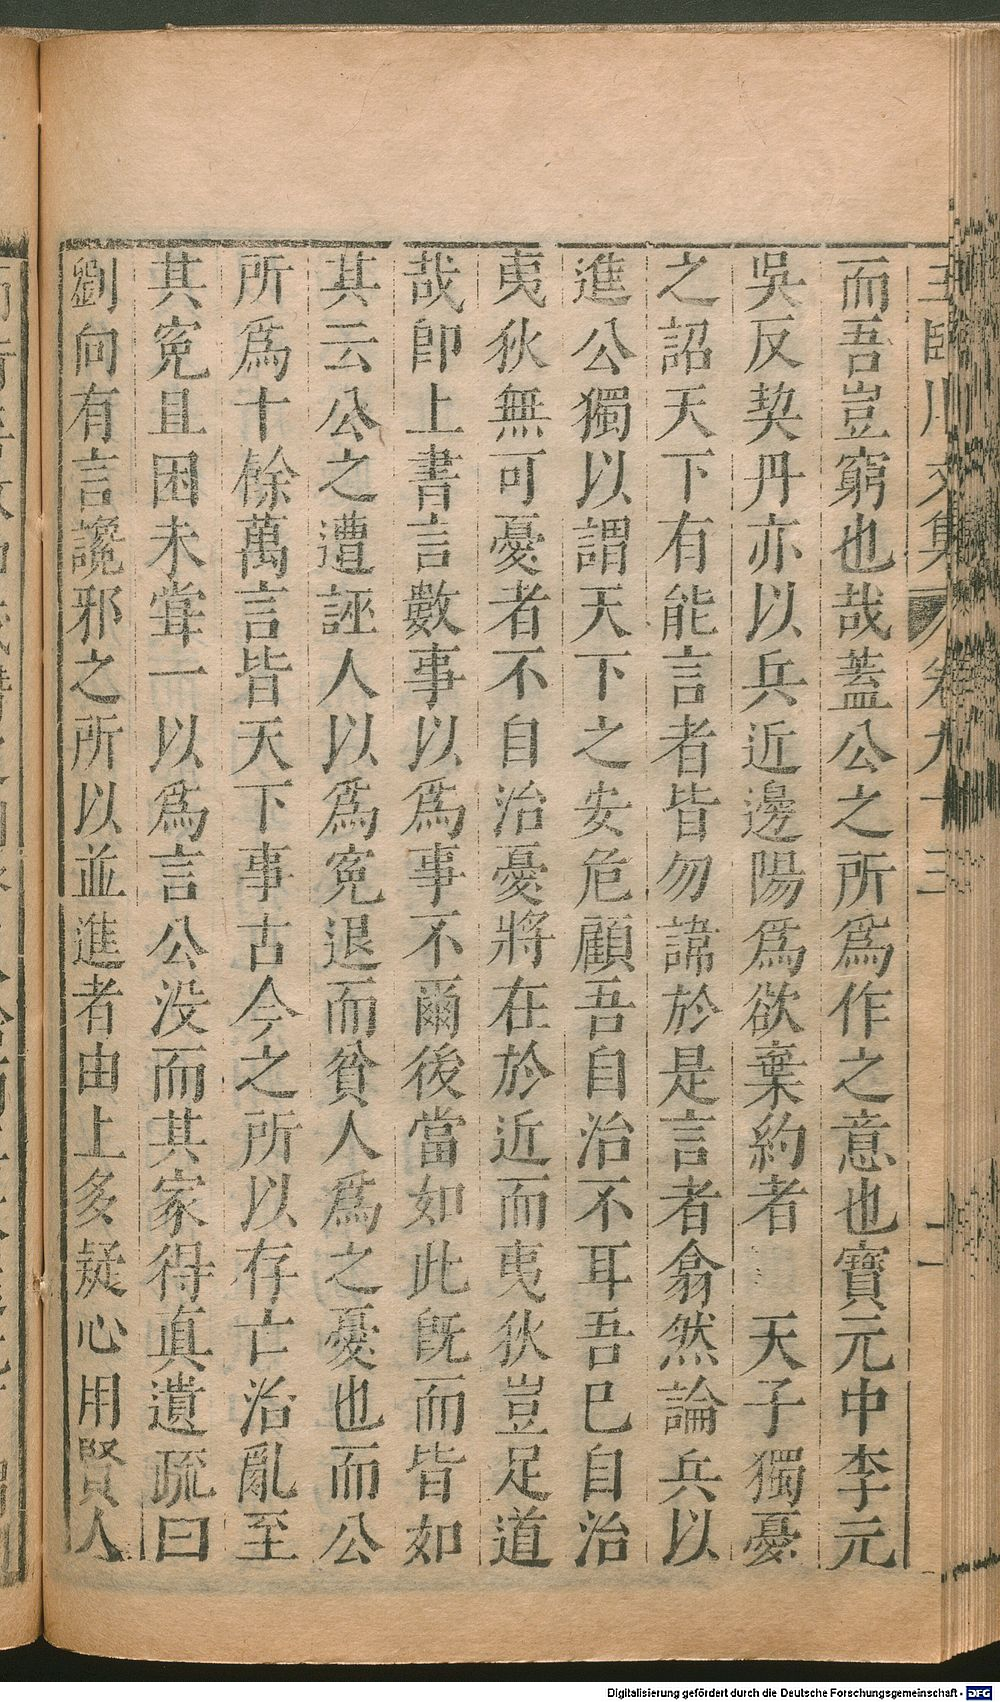 王臨川文集 卷九十三
而吾豈窮也哉蓋公之所爲作之意也寶元中李元
吳反契丹亦以兵近邊陽爲欲棄約者 天子獨憂
之詔天下有能言者皆勿諱於是言者翕然論兵以
進公獨以謂天下之安危顧吾自治不耳吾已自治
夷狄無可憂者不自治憂將在於近而夷狄豈足道
哉卽上書言數事以爲事不爾後當如此旣而皆如
其云公之遭誣人以爲寃退而貧人爲之憂也而公
所爲十餘萬言皆天下事古今之所以存亡治亂至
其寃且困未甞一以爲言公没而其家得真遺疏曰
劉向有言讒邪之所以並進者由上多疑心用賢人
Digitalisierung gefördert durch die Deutsche Forschungsgemeinschaft - DFG